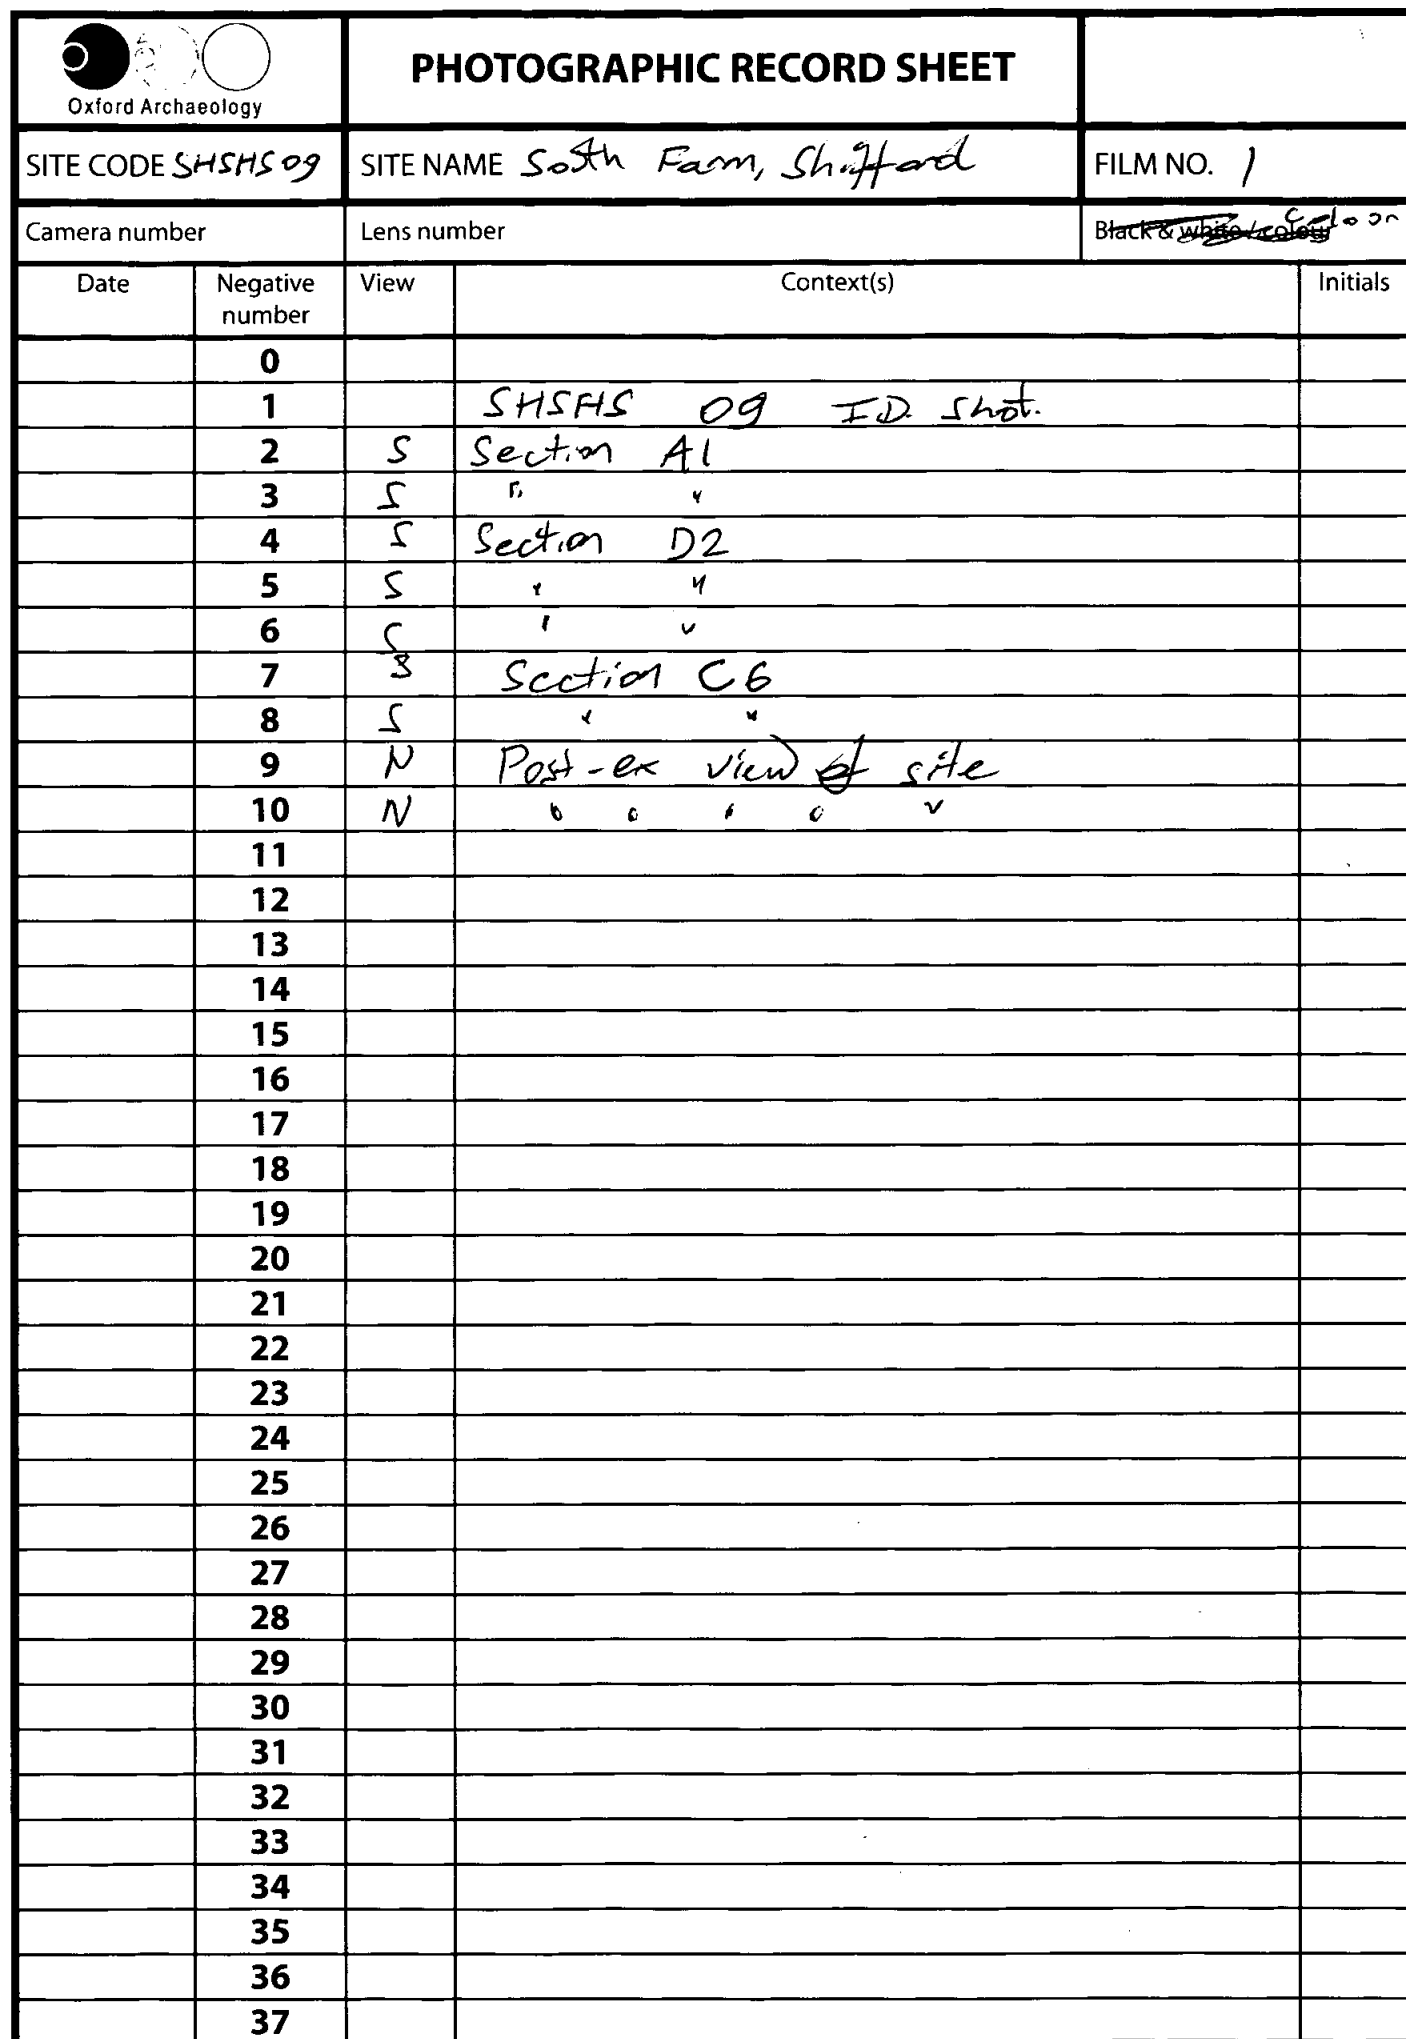 Oxford Archaeology
PHOTOGRAPHIC RECORD SHEET
SITE CODE SHSHS 09
SITE NAME South Farm, Shifford
FILM NO. 1
Camera number
Lens number
Black & white / colour Colour
Date
Negative number
View
Context(s)
Initials
0
1 SHSHS 09 I.D. Shot.
2 S Section A1
3 S " "
4 S Section D2
5 S " "
6 S " "
7 S Section C6
8 S " "
9 N Post-ex view of site
10 N " " " " "
11
12
13
14
15
16
17
18
19
20
21
22
23
24
25
26
27
28
29
30
31
32
33
34
35
36
37